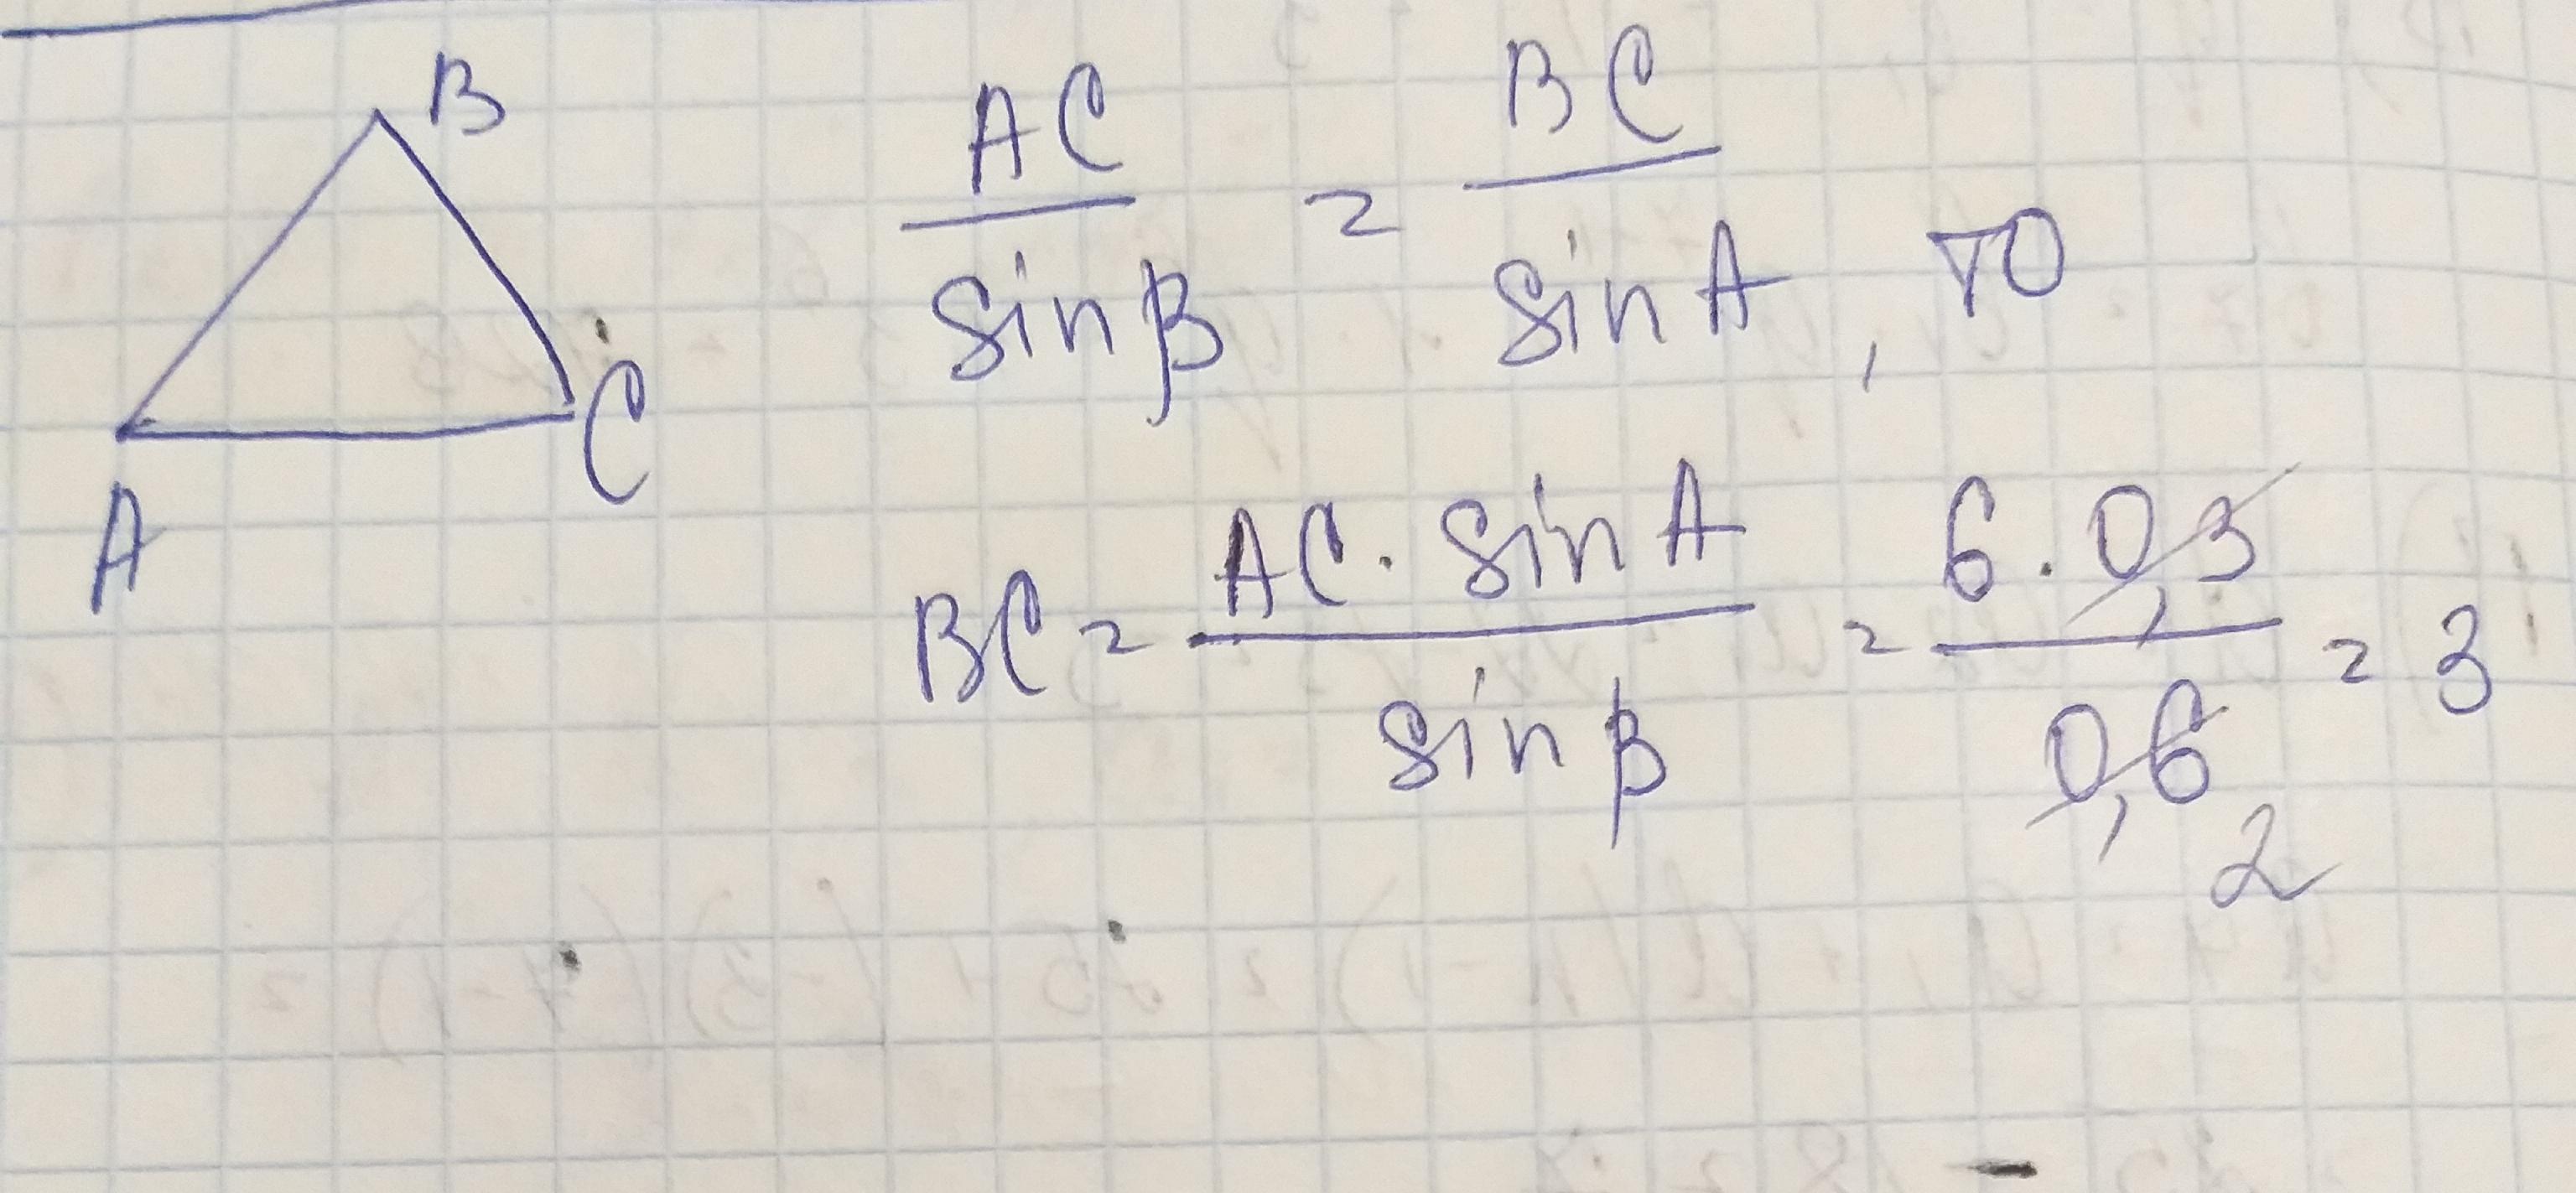 B
A
C
AC / sin B = BC / sin A , то
BC = AC · sin A / sin B = 6 · 0,3 / 0,6 = 3
2